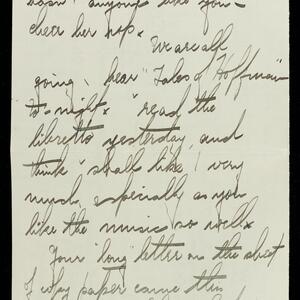 hasn't anyone like you -
cheer her up.
We are all
going, hear "Tales of Hoffman"
to-night. I read the
libretto yesterday, and
think I shall like it very
much, especially as you
like the music so well.
Your "long" letter on the sheet
of why paper came this